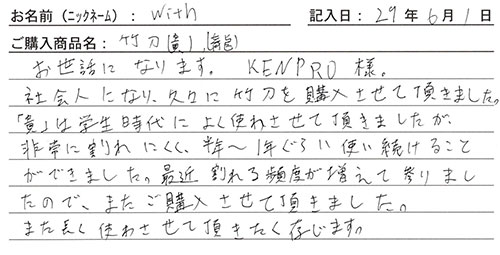 お名前（ニックネーム）： with 記入日：29年6月1日
ご購入商品名：竹刀（貴）,（龍凰）
お世話になります。 KENPRO様。
社会人になり、久々に竹刀を購入させて頂きました。
「貴」は学生時代によく使わさせて頂きましたが、
非常に割れにくく、半年～1年ぐらい使い続けること
ができました。最近割れる頻度が増えて参りまし
たので、またご購入させて頂きました。
また長く使わさせて頂きたく存じます。